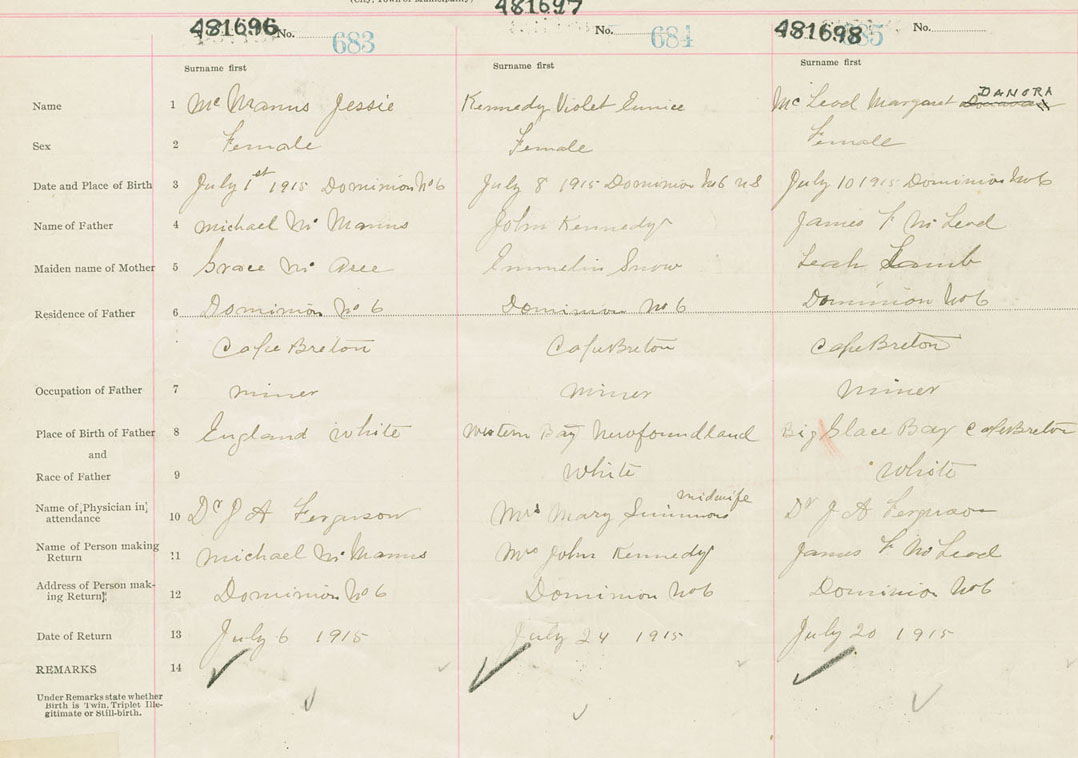 (City, Town or Municipality)
481696 No. 683
481697 No. 684
481698 685 No.
Surname first Surname first Surname first
Name 1 Mc Manus Jessie Kennedy Violet Eunice Mc Leod Margaret DANORA
Sex 2 Female Female Female
Date and Place of Birth 3 July 1st 1915 Dominion No 6 July 8 1915 Dominion No 6 NS July 10 1915 Dominion No 6
Name of Father 4 Michael Mc Manus John Kennedy James F McLeod
Maiden name of Mother 5 Grace Mc Emmelin Snow Leah Lamb
Residence of Father 6 Dominion No 6 Dominion No 6 Dominion No 6
Cape Breton Cape Breton Cape Breton
Occupation of Father 7 Miner Miner Miner
Place of Birth of Father 8 England White Western Bay Newfoundland Big Glace Bay Cape Breton
and
Race of Father 9 White White
Name of Physician in attendance 10 Dr J A Ferguson Mrs Mary Simmons midwife Dr J A Ferguson
Name of Person making Return 11 Michael Mc Manus Mrs John Kennedy James F McLeod
Address of Person making Return 12 Dominion No 6 Dominion No 6 Dominion No 6
Date of Return 13 July 6 1915 July 24 1915 July 20 1915
REMARKS 14
Under Remarks state whether
Birth is Twin, Triplet Ille-
gitimate or Still-birth.